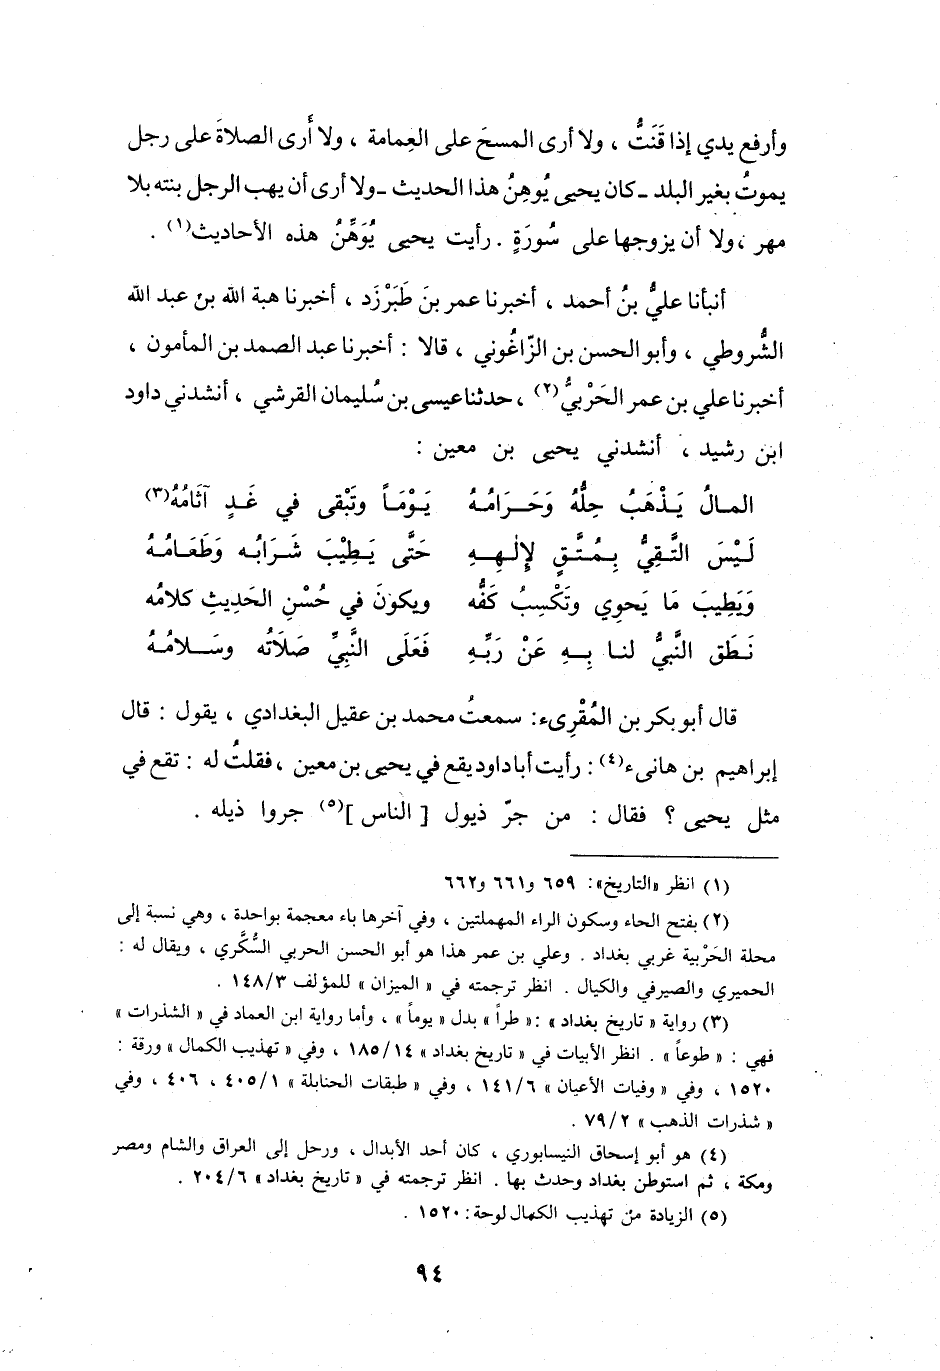 وأرفع يدي إذا قَنَتُّ ، ولا أرى المسحَ على العِمامة ، ولا أَرى الصلاةَ على رجل
يموتُ بغير البلد ـ كان يحيى يُوهِنُ هذا الحديث ـ ولا أرى أن يهب الرجل بنته بلا
مهر ، ولا أن يزوجها على سُورَةٍ . رأيت يحيى يُوَهِّنُ هذه الأحاديث(١) .
أنبأنا عليُّ بنُ أحمد ، أخبرنا عمر بنَ طَبَرْزَد ، أخبرنا هبة الله بن عبد الله
الشُّروطي ، وأبو الحسن بن الزّاغُوني ، قالا : أخبرنا عبد الصمد بن المأمون ،
أخبرنا علي بن عمر الحَرْبيُّ(٢) ، حدثنا عيسى بن سُليمان القرشي ، أنشدني داود
ابن رشيد ، أنشدني يحيى بن معين :
المالُ يَذْهَبُ حِلُّهُ وَحَرَامُهُ يَوْمَاً وتَبْقى في غَدٍ آثَامُهُ(٣)
لَيْسَ التَّقِيُّ بِمُتَّقٍ لإِلٰهِهِ حَتَّى يَطِيْبَ شَرَابُه وَطَعَامُهُ
وَيَطِيبَ مَا يَحوِي وتَكْسِبُ كَفُّه ويكونَ في حُسْنِ الحَدِيثِ كلامُه
نَطَق النَّبيُّ لنا بِهِ عَنْ رَبِّهِ فَعَلَى النَّبِيِّ صَلَاتُه وسَلامُهُ
قال أبو بكر بن المُقْرِىء : سمعتُ محمد بن عقيل البغدادي ، يقول : قال
إبراهيم بن هانىء(٤) : رأيت أبا داود يقع في يحيى بن معين ، فقلتُ له : تقع في
مثل يحيى ؟ فقال : من جرّ ذيول [ الناس ](٥) جروا ذيله .
(١) انظر «التاريخ» : ٦٥٩ و٦٦١ و٦٦٢
(٢) بفتح الحاء وسكون الراء المهملتين ، وفي آخرها باء معجمة بواحدة ، وهي نسبة إلى
محلة الحَرْبية غربي بغداد . وعلي بن عمر هذا هو أبو الحسن الحربي السُّكَّري ، ويقال له :
الحميري والصيرفي والكيال . انظر ترجمته في « الميزان » للمؤلف ١٤٨/٣ .
(٣) رواية « تاريخ بغداد » : « طراً » بدل « يوماً » ، وأما رواية ابن العماد في « الشذرات »
فهي : « طوعاً » . انظر الأبيات في « تاريخ بغداد » ١٨٥/١٤ ، وفي « تهذيب الكمال » ورقة :
١٥٢٠ ، وفي « وفيات الأعيان » ١٤١/٦ ، وفي « طبقات الحنابلة » ٤٠٥/١ ، ٤٠٦ ، وفي
« شذرات الذهب » ٧٩/٢ .
(٤) هو أبو إسحاق النيسابوري ، كان أحد الأبدال ، ورحل إلى العراق والشام ومصر
ومكة ، ثم استوطن بغداد وحدث بها . انظر ترجمته في « تاريخ بغداد » ٢٠٤/٦ .
(٥) الزيادة من تهذيب الكمال لوحة : ١٥٢٠ .
٩٤